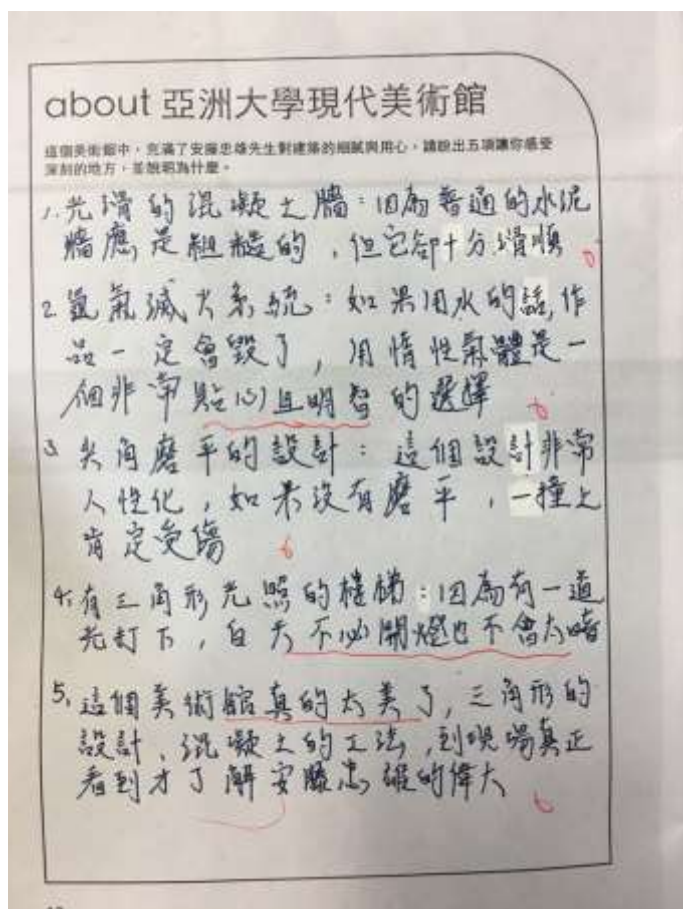 about 亞洲大學現代美術館
這個美術館中，充滿了安藤忠雄先生對建築的細膩與用心，請說出五項讓你感受
深刻的地方，並說明為什麼。
1. 光滑的混凝土牆：因為普通的水泥
牆應是粗糙的，但它卻十分滑順
2. 氬氣滅火系統：如果用水的話，作
品一定會毀了，用惰性氣體是一
個非常貼心且明智的選擇
3 尖角磨平的設計：這個設計非常
人性化，如果沒有磨平，一撞上
肯定受傷
4. 有三角形光照的樓梯：因為有一道
光打下，白天不必開燈也不會太暗
5. 這個美術館真的太美了，三角形的
設計、混凝土的工法，到現場真正
看到才了解安藤忠雄的偉大